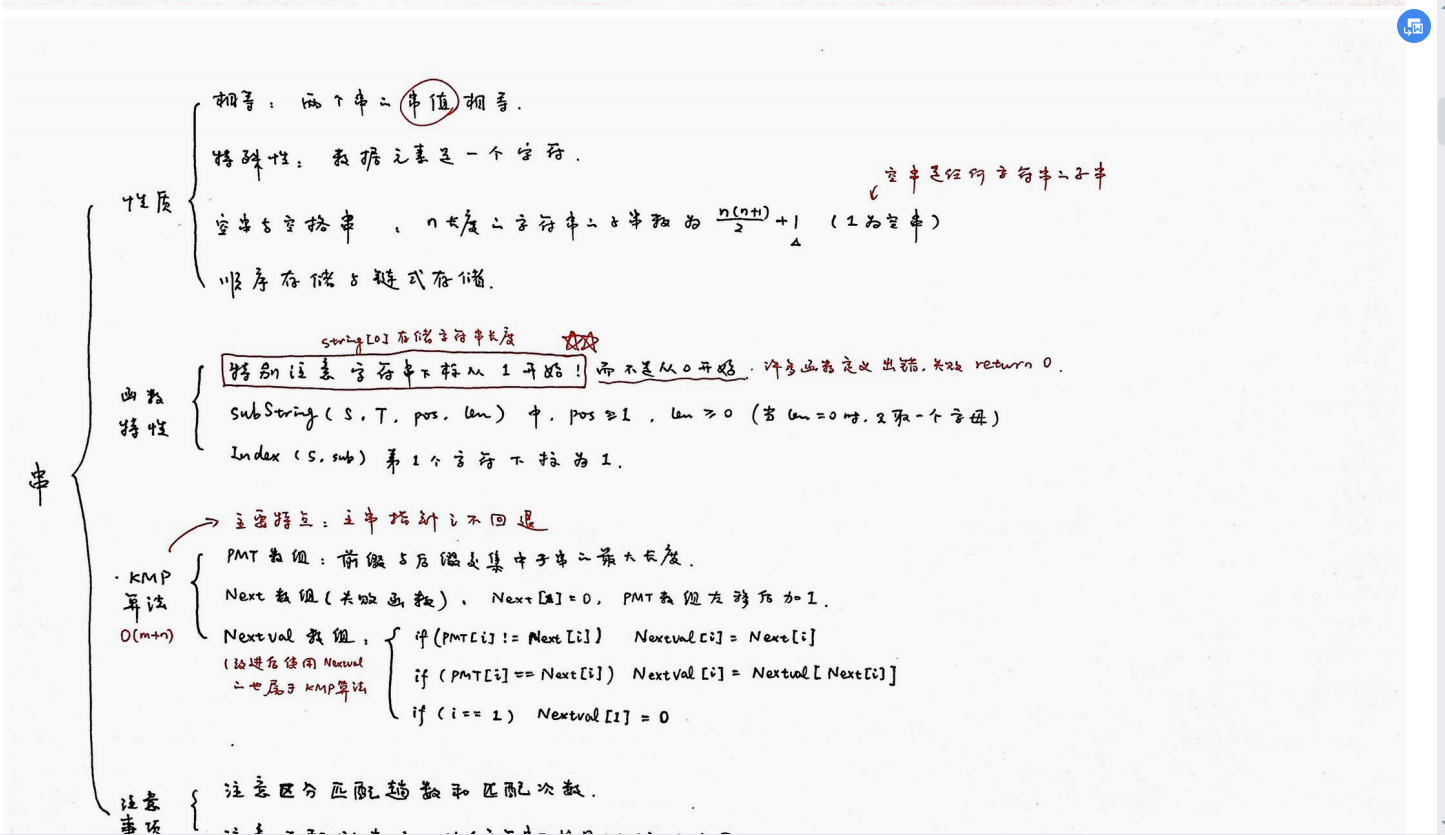 串
性质
相等：两个串的串值相等.
特殊性：数据元素是一个字符.
空串是任何字符串的子串
空串与空格串 , n长度的字符串的子串数为 n(n+1)/2 + 1 (1为空串)
顺序存储与链式存储.
函数特性
string[0]存储字符串长度
特别注意字符串下标从1开始! 而不是从0开始. 许多函数定义出错,失败 return 0.
SubString(S, T, pos, len) 中, pos≥1, len≥0 (当len=0时,只取一个字母)
Index(S, sub) 第1个字符下标为1.
主要特点：主串指针i不回退
· KMP算法
O(m+n)
PMT数组：前缀与后缀交集中子串的最大长度.
Next数组(失败函数), Next[1]=0, PMT数组右移后加1.
Nextval数组,
(改进后使用Nextval
的也属于KMP算法
if(PMT[i] != Next[i]) Nextval[i] = Next[i]
if (PMT[i] == Next[i]) Nextval[i] = Nextval[Next[i]]
if (i == 1) Nextval[1] = 0
注意事项
注意区分匹配趟数和匹配次数.